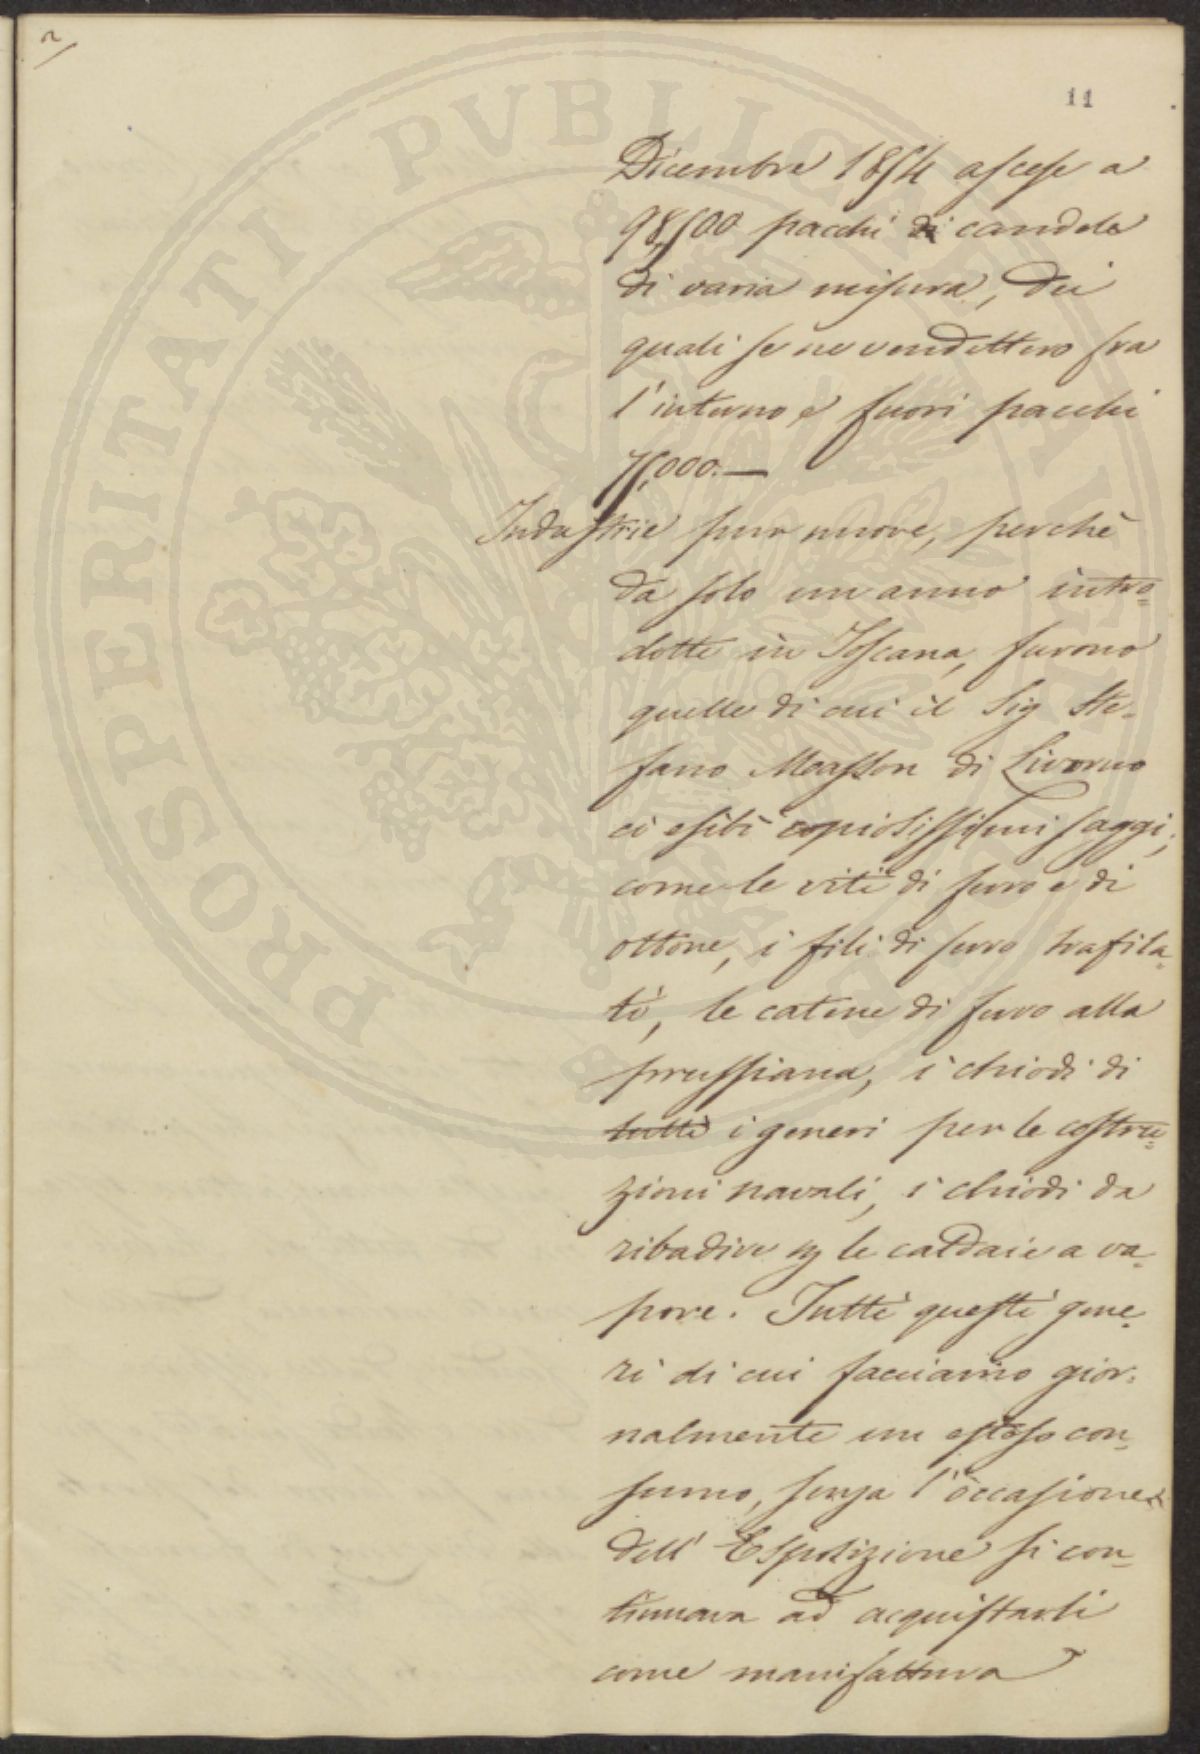 2/
11
Dicembre 1854 ascese a
98,500 pacchi di candele
di varia misura, dei
quali se ne vendettero fra
l'interno e fuori pacchi
75,000.—
Industrie pur nuove, perchè
da solo un anno intro=
dotte in Toscana, furono
quelle di cui il Sig Ste-
fano Masson di Livorno
ci esibì copiosissimi saggi;
come le viti di ferro e di
ottone, i fili di ferro trafila=
ti, le catene di ferro alla
prussiana, i chiodi di
tutti i generi per le costru=
zioni navali, i chiodi da
ribadire le caldaie a va=
pore. Tutti questi gene=
ri di cui facciamo gior=
nalmente un esteso con=
sumo, senza l'occasione
dell'Esposizione si con=
tinuava ad acquistarli
come manifattura
PROSPERITATI PVBLICAE